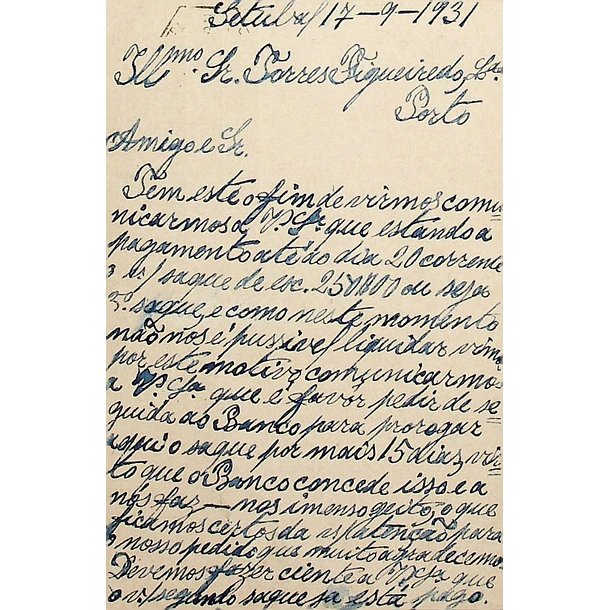 Setubal 17-9-1931
Illmo. Sr. Torres Figueiredo, Lda.
Porto
Amigo e Sr.
Tem este o fim de virmos comu=
nicarmos a V. Sa. que estando a
pagamento até ao dia 20 corrente
o v/ saque de esc. 250$00 ou seja
3º. saque, e como neste momento
não nos é pussivel liquidar vimos
por este motivo comunicarmos
a V. Sa. que é favôr pedir de se=
guida ao Banco para prorogar
aqui o saque por mais 15 diaz, vis=
to que o Banco concede isso e a
nós faz-nos imenso geito, o que
ficamos certos da v/ atenção para
o nosso pedido que muito agradecemos.
Devemos fazer ciente a V. Sa. que
o v/ segundo saque ja está pago.